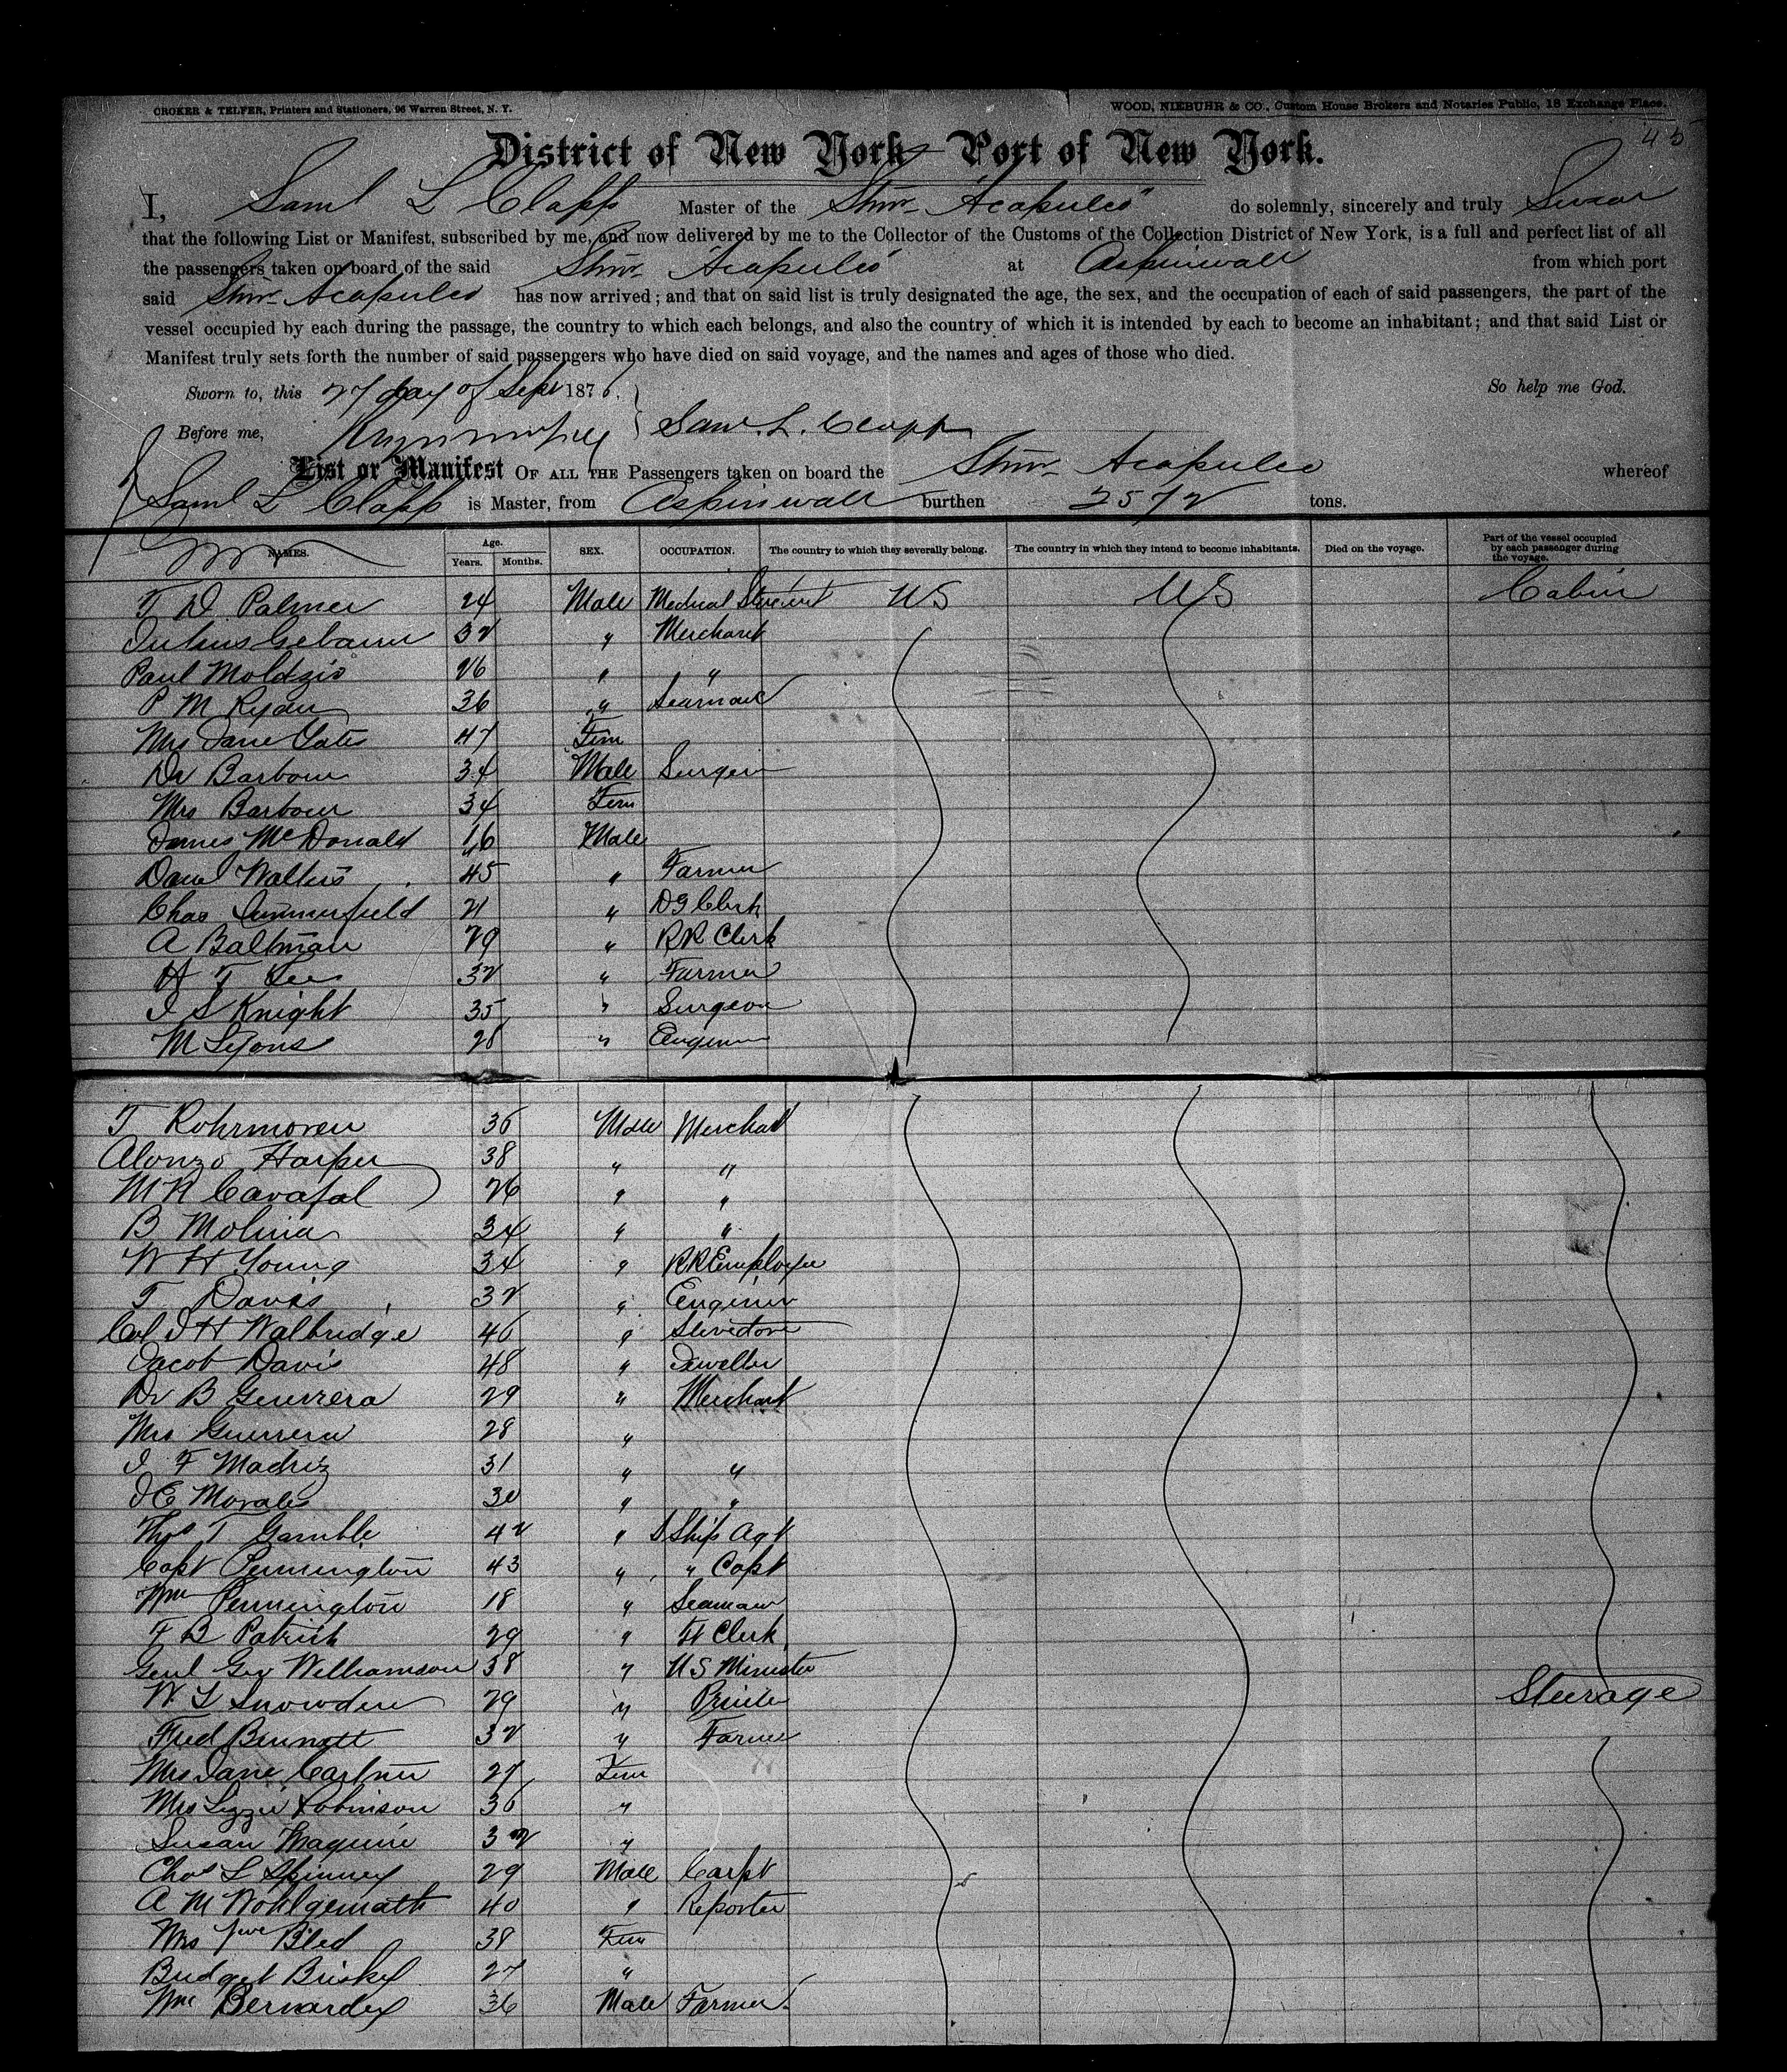 CROKER & TELFER, Printers and Stationers, 96 Warren Street, N. Y. WOOD, NIEBUHR & CO., Custom House Brokers and Notaries Public, 18 Exchange Place.
45
District of New York—Port of New York.
I, Saml L Clapp Master of the Stmr Acapulco do solemnly, sincerely and truly Swear
that the following List or Manifest, subscribed by me, and now delivered by me to the Collector of the Customs of the Collection District of New York, is a full and perfect list of all
the passengers taken on board of the said Stmr Acapulco at Aspinwall from which port
said Stmr Acapulco has now arrived; and that on said list is truly designated the age, the sex, and the occupation of each of said passengers, the part of the
vessel occupied by each during the passage, the country to which each belongs, and also the country of which it is intended by each to become an inhabitant; and that said List or
Manifest truly sets forth the number of said passengers who have died on said voyage, and the names and ages of those who died.
Sworn to, this 27 day of Sept 1876. So help me God.
Before me, Saml. L. Clapp
List or Manifest OF ALL THE Passengers taken on board the Stmr Acapulco whereof
Saml L Clapp is Master, from Aspinwall burthen 2572 tons.
NAMES. Age. Years. Months. SEX. OCCUPATION. The country to which they severally belong. The country in which they intend to become inhabitants. Died on the voyage. Part of the vessel occupied by each passenger during the voyage.
T D Palmer 24 Male Medical Student US US Cabin
Julius 32 " Merchant
Paul Moldzio 26 " "
P M Ryan 36 " Seaman
Mrs Jane Yates 47 Fem
Dr Barbour 34 Male Surgeon
Mrs Barbour 34 Fem
James McDonald 16 Male
Danl Walters 45 " Farmer
Chas Summerfield 21 " D G Clerk
A Baltman 29 " RR Clerk
H T Lee 32 " Farmer
J S Knight 35 " Surgeon
M Lyons 28 " Engineer
T Rohrmoren 36 Male Merchant
Alonzo Harper 38 " "
M R Cavafal 26 " "
B Molina 34 " "
W H Young 34 " RR Employee
T Davis 32 " Engineer
Col J H Walbridge 46 " Stevedore
Jacob Davis 48 " Jeweller
Dr B Guerrera 29 " Merchant
Mrs Guerrera 28 "
J F Madriz 31 " "
J E Morales 30 " "
Thos T Gamble 42 " S Ship Agt
Capt Pennington 43 " " Capt
Wm Pennington 18 " Seaman
F B Patrick 29 " Ft Clerk
Genl Geo Williamson 38 " US Minister
W L Snowden 29 " Printer Steerage
Fred Bennett 32 " Farmer
Mrs Jane Cartner 27 Fem
Mrs Lizzie Robinson 36 "
Susan Maguire 32 "
Chas L Spinney 29 Male Carpt
A M Wohlgemath 40 " Reporter
Mrs Bled 38 Fem
Bridget Brisky 27 "
Wm Bernardey 36 Male Farmer